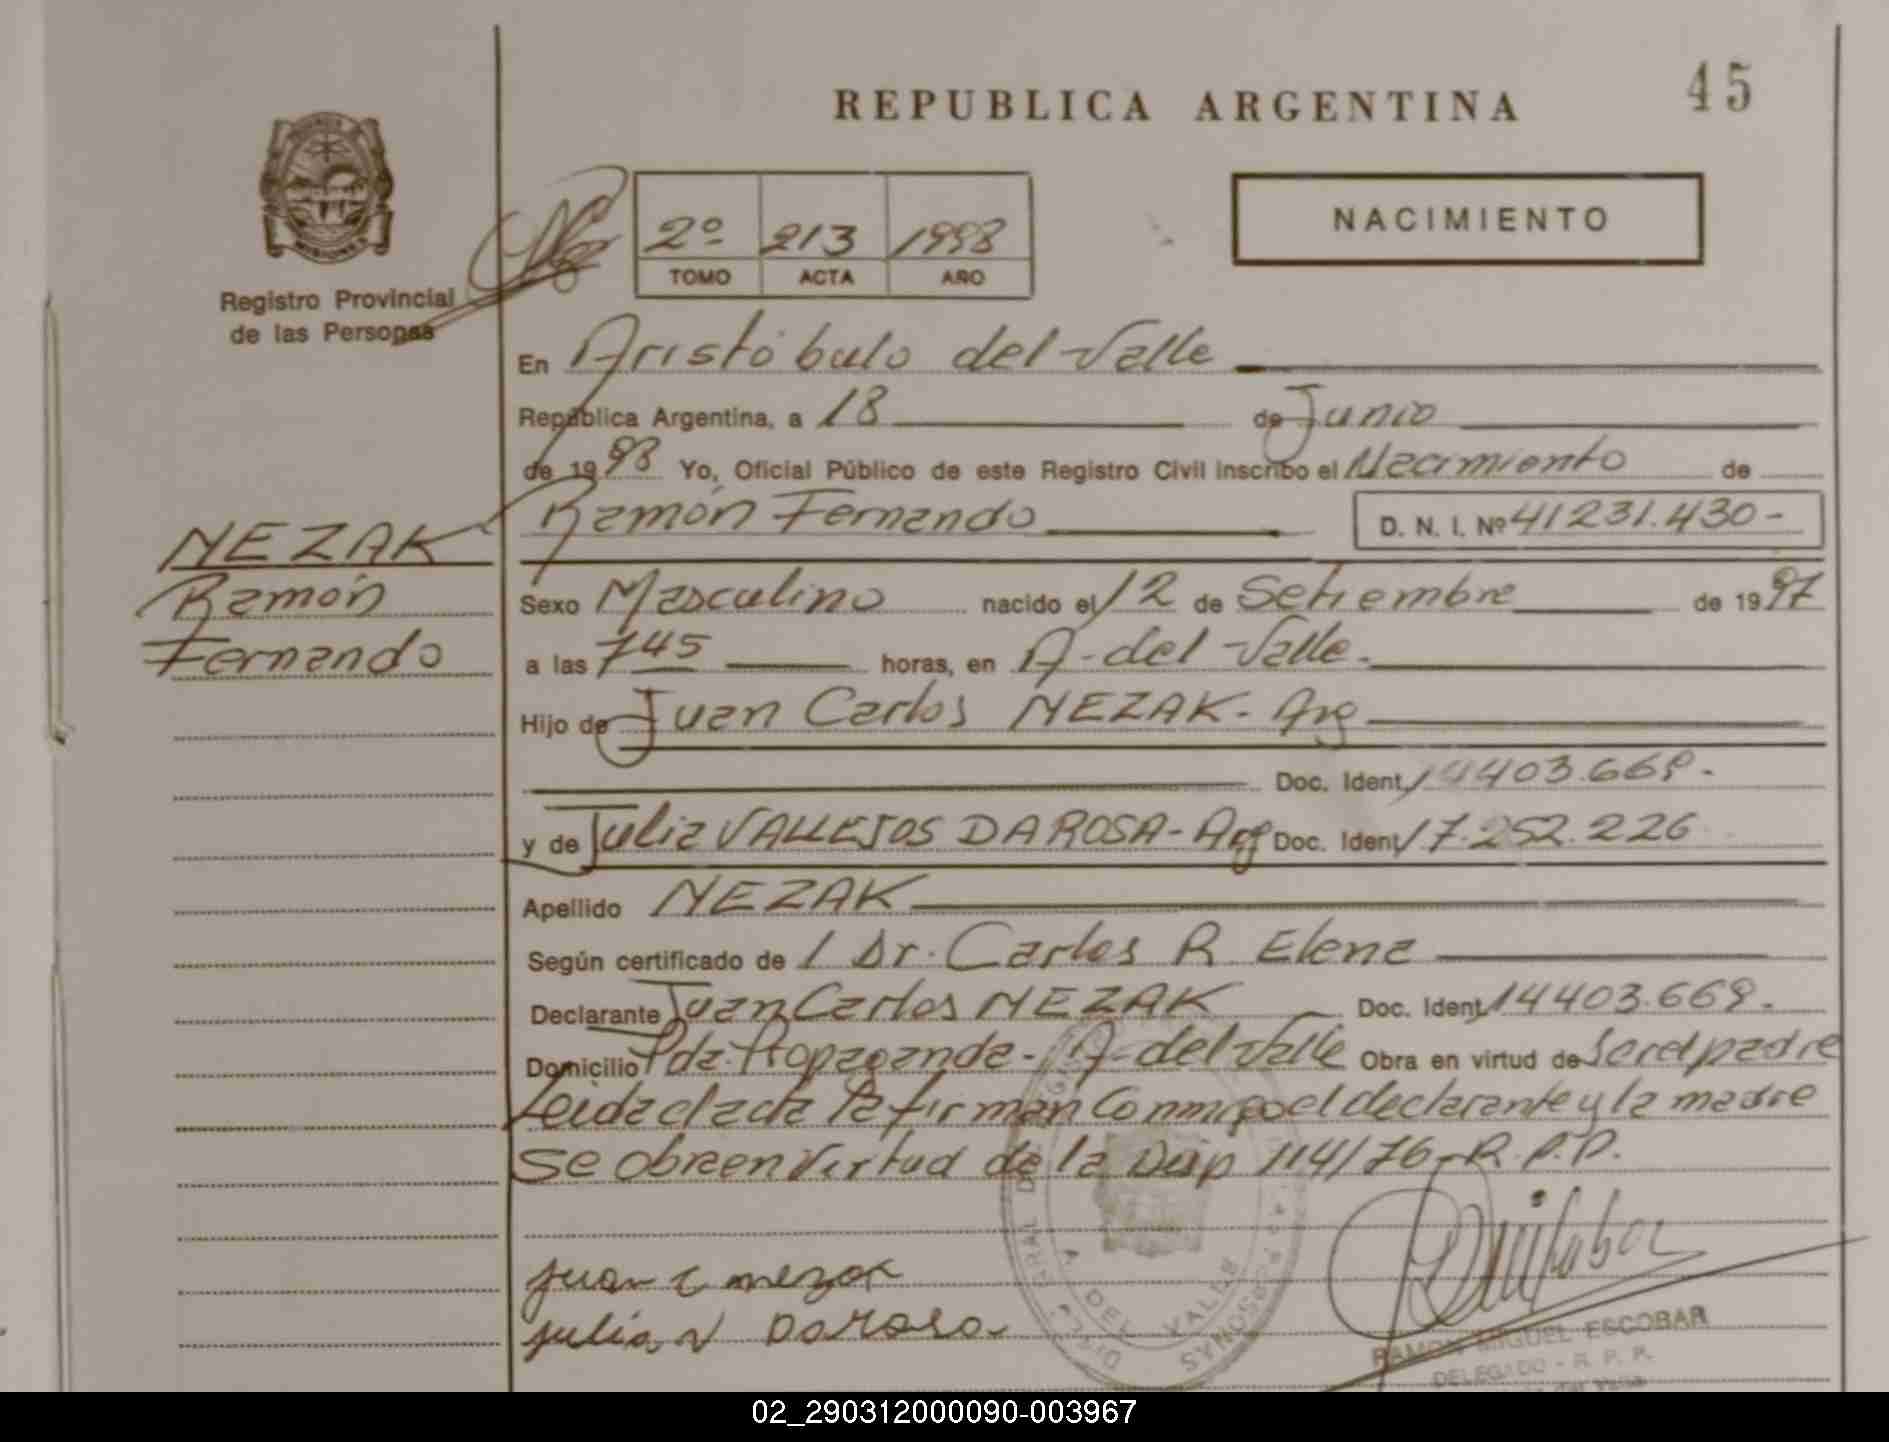 REPUBLICA ARGENTINA
45
MISIONES
Registro Provincial
de las Personas
2º 213 1998
TOMO ACTA AÑO
NACIMIENTO
En Aristóbulo del Valle
República Argentina, a 18 de Junio
de 1998 Yo, Oficial Público de este Registro Civil inscribo el Nacimiento de
Ramón Fernando D. N. I. Nº 41231.430-
NEZAK
Ramón
Fernando
Sexo Masculino nacido el 12 de Setiembre de 1997
a las 745 horas, en A-del Valle.
Hijo de Juan Carlos NEZAK- Arg
Doc. Ident. 14403.669.
y de Julia VALLEJOS DA ROSA- Arg Doc. Ident. 17.252.226
Apellido NEZAK
Según certificado de / Dr. Carlos R Elena
Declarante Juan Carlos NEZAK Doc. Ident. 14403.669.
Domicilio Pda. Propaganda- A-del Valle Obra en virtud de Ser el padre
Leida el acta la firman Conmigo el declarante y la madre
Se obra en Virtud de la Disp 114/76-R.P.P.
juan c nezak
julia V DaRosa
A DEL VALLE
RAMON MIGUEL ESCOBAR
DELEGADO - R. P. P.
02_290312000090-003967